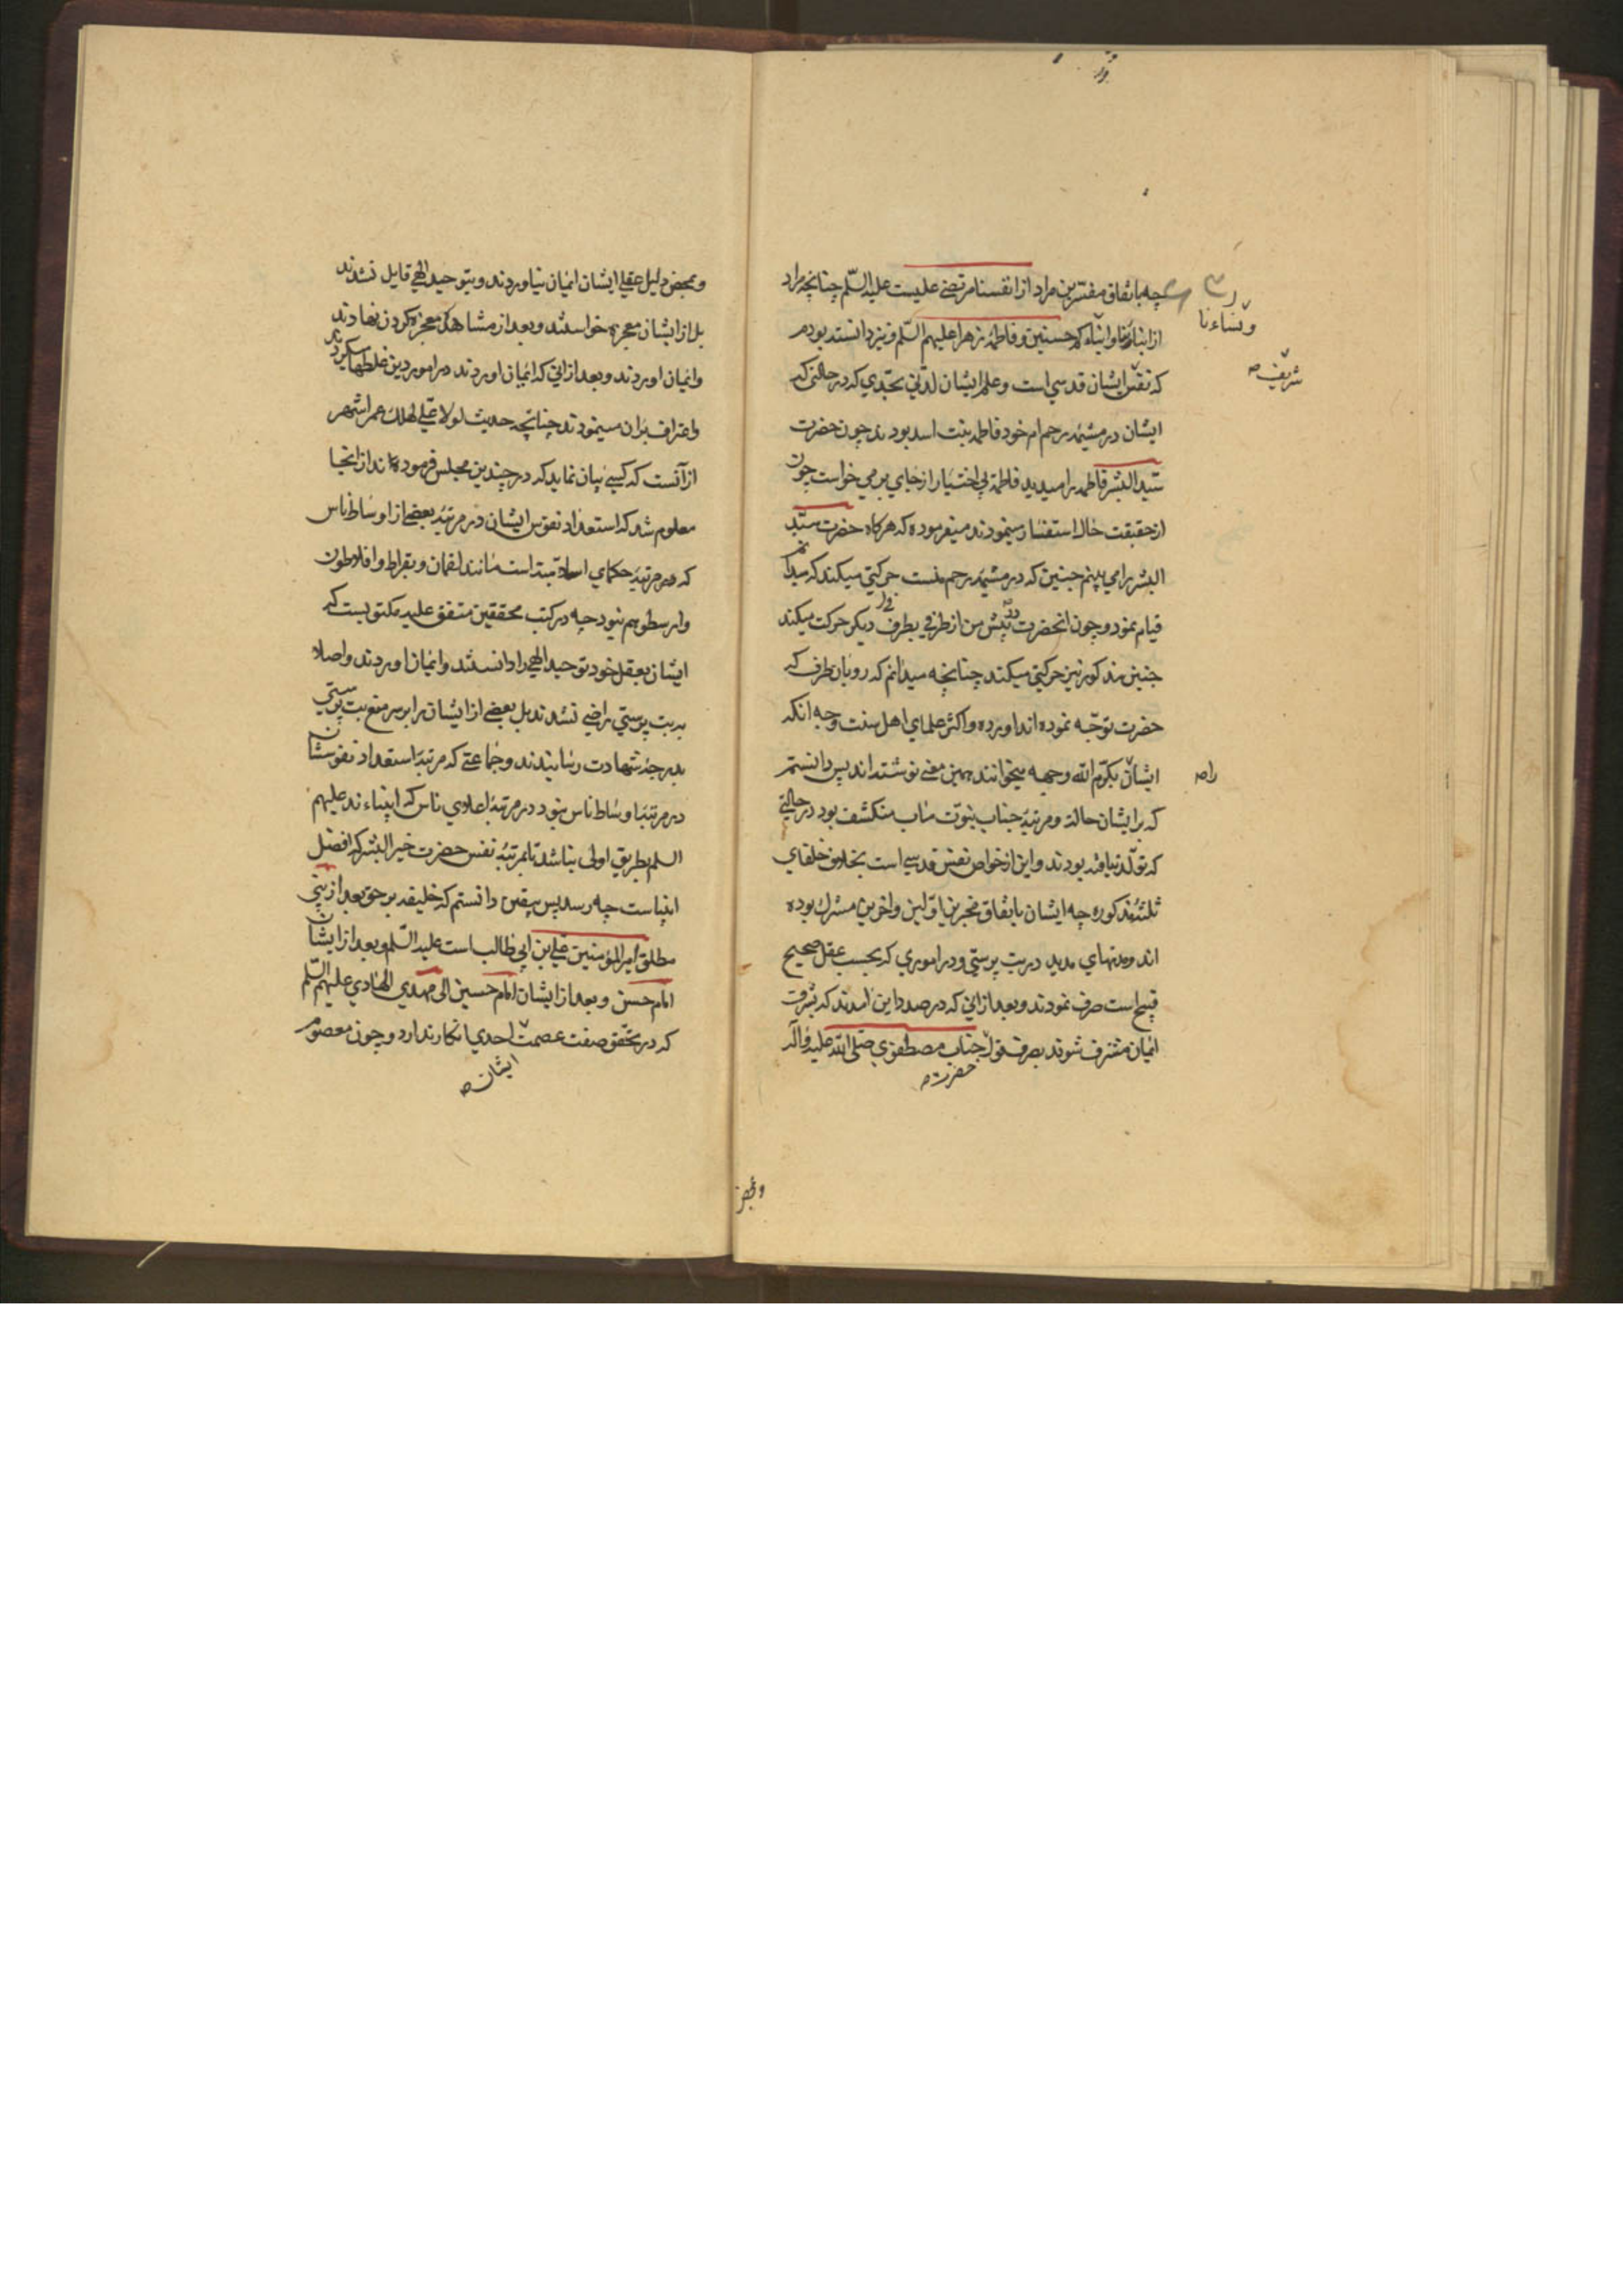 چه باتفاق مفسرین مراد از انفسنا مرتضی علیست علیه السلم چنانچه مراد
ونساءنا
از ابناءنا وابناءکم حسنین وفاطمه زهرا علیهم السلم ونیز دانسته بودم
شریف ص
که نفس ایشان قدسی است وعلم ایشان لدنی بحدی که در حالتی که
ایشان در مشیمه رحم ام خود فاطمه بنت اسد بودند چون حضرت
سید البشر فاطمه را میدید فاطمه بی اختیار از جای بر می خواست چون
از حقیقت حال استفسار مینمودند میفرموده که هرکاه حضرت سید
البشر را می بینم جنین که در مشیمه رحم منست حرکتی میکند که میدانم
قیام نمود وچون انحضرت در پیش من از طرفی بطرف دیکر حرکت میکند
جنین مذکور نیز حرکتی میکند چنانچه میدانم که رو بان طرف که
حضرت توجه نموده اند اورده واکثر علمای اهل سنت وجه انکه
ایشان بکرم الله وجهه میخوانند همین معنی نوشته اند پس دانستم
را ص
که بر ایشان حالت ومرتبه جناب نبوت مأب منکشف بود در حالتی
که تولد نیافته بودند واین از خواص نفس قدسی است بخلاف خلفای
ثلثه مذکوره چه ایشان باتفاق مخبرین اولین واخرین مشرک بوده
اند ومدتهای مدید در بت پرستی ودر اموری که بحسب عقل صحیح
قبیح است صرف نمودند وبعد از انی که در صدد این امدند که بشرف
ایمان مشرف شوند بصرف قول جناب مصطفوی صلی الله علیه واله
حضرت ص
وبمحض دلیل عقلی ایشان ایمان نیاوردند وبتوحید الهی قایل نشدند
بل از ایشان معجزه خواستند وبعد از مشاهده معجزه کردن نهادند
وایمان اوردند وبعد از انی که ایمان اوردند در امور دین غلطها میکردند
واعتراف بران مینمودند چنانچه حدیث لولا علی لهلک عمر اشهر
از آنست که کسی بیان نماید که در چندین مجلس فرموده اند از انجا
معلوم شد که استعداد نفوس ایشان در مرتبه بعضی از اوساط ناس
که در مرتبه حکمای است مانند لقمان وبقراط وافلاطون
وارسطو هم نبود چه در کتب محققین متفق علیه مکتوبست که
ایشان بعقل خود توحید الهی را دانستند وایمان اوردند واصلا
به بت پرستی راضی نشدند بل بعضی از ایشان را بر سر منع بت پرستی
بدرجه شهادت رسانیدند وجماعتی که مرتبه استعداد نفوسشان
در مرتبه اوساط ناس نبود در مرتبه اعادی ناس که انبیاءند علیهم
السلم بطریق اولی نباشد تا بمرتبه نفس حضرت خیر البشر که افضل
انبیاست چه رسد پس بیقین دانستم که خلیفه بر حق بعد از نبی
مطلق امیر المؤمنین علی بن ابی طالب است علیه السلم وبعد از ایشان
امام حسن وبعد از ایشان امام حسین الی مهدی الهادی علیهم السلم
که در تحقق صفت عصمت احدی انکار ندارد وچون معصوم
ایشان ص